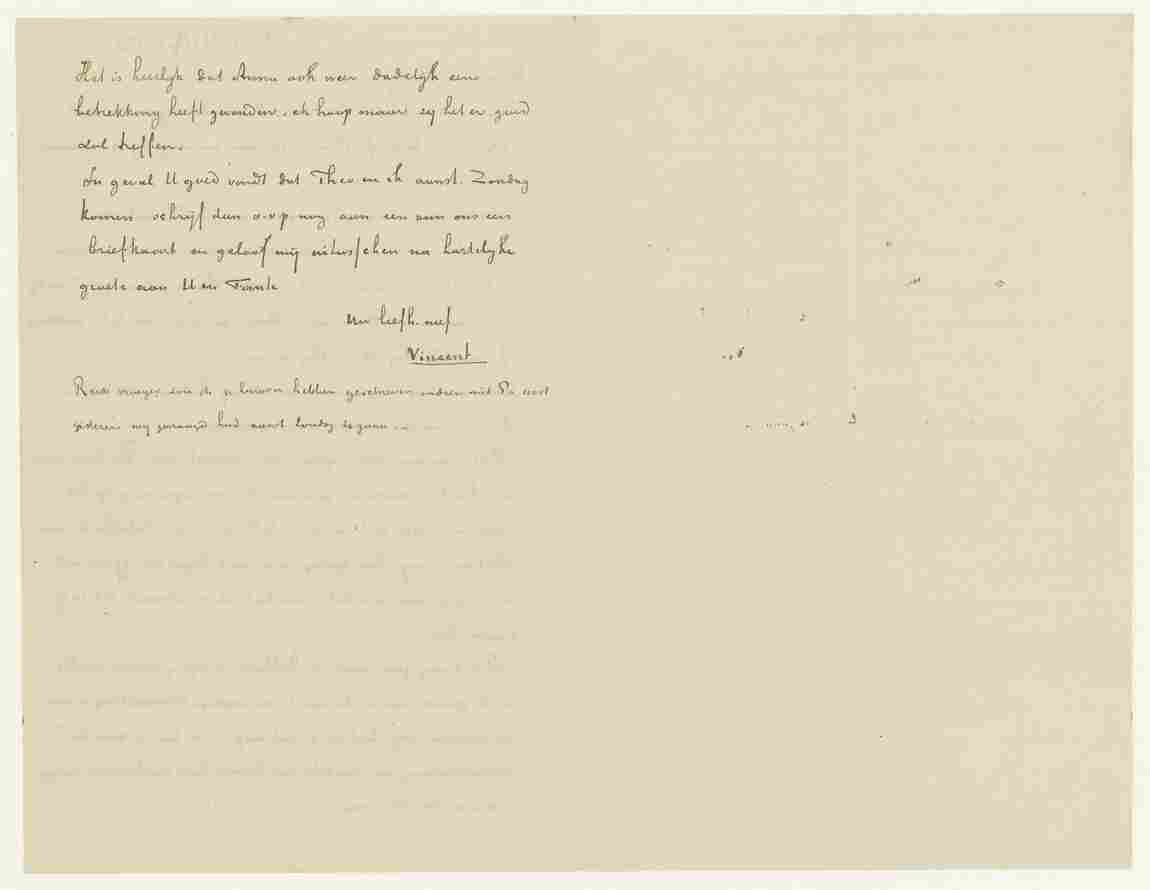 Het is heerlijk dat Anna ook weer dadelijk eene
betrekking heeft gevonden, ik hoop maar zij het er goed
zal treffen.
In geval U goed vindt dat Theo en ik aanst. Zondag
komen schrijf dan s.v.p. nog aan een van ons een
briefkaart en geloof mij intusschen na hartelijke
groete aan U en Tante
Uw liefh. neef
Vincent
Reeds vroeger zou ik U hebben geschreven indien niet Pa
gisteren mij gevraagd had aanst. Zondag te gaan